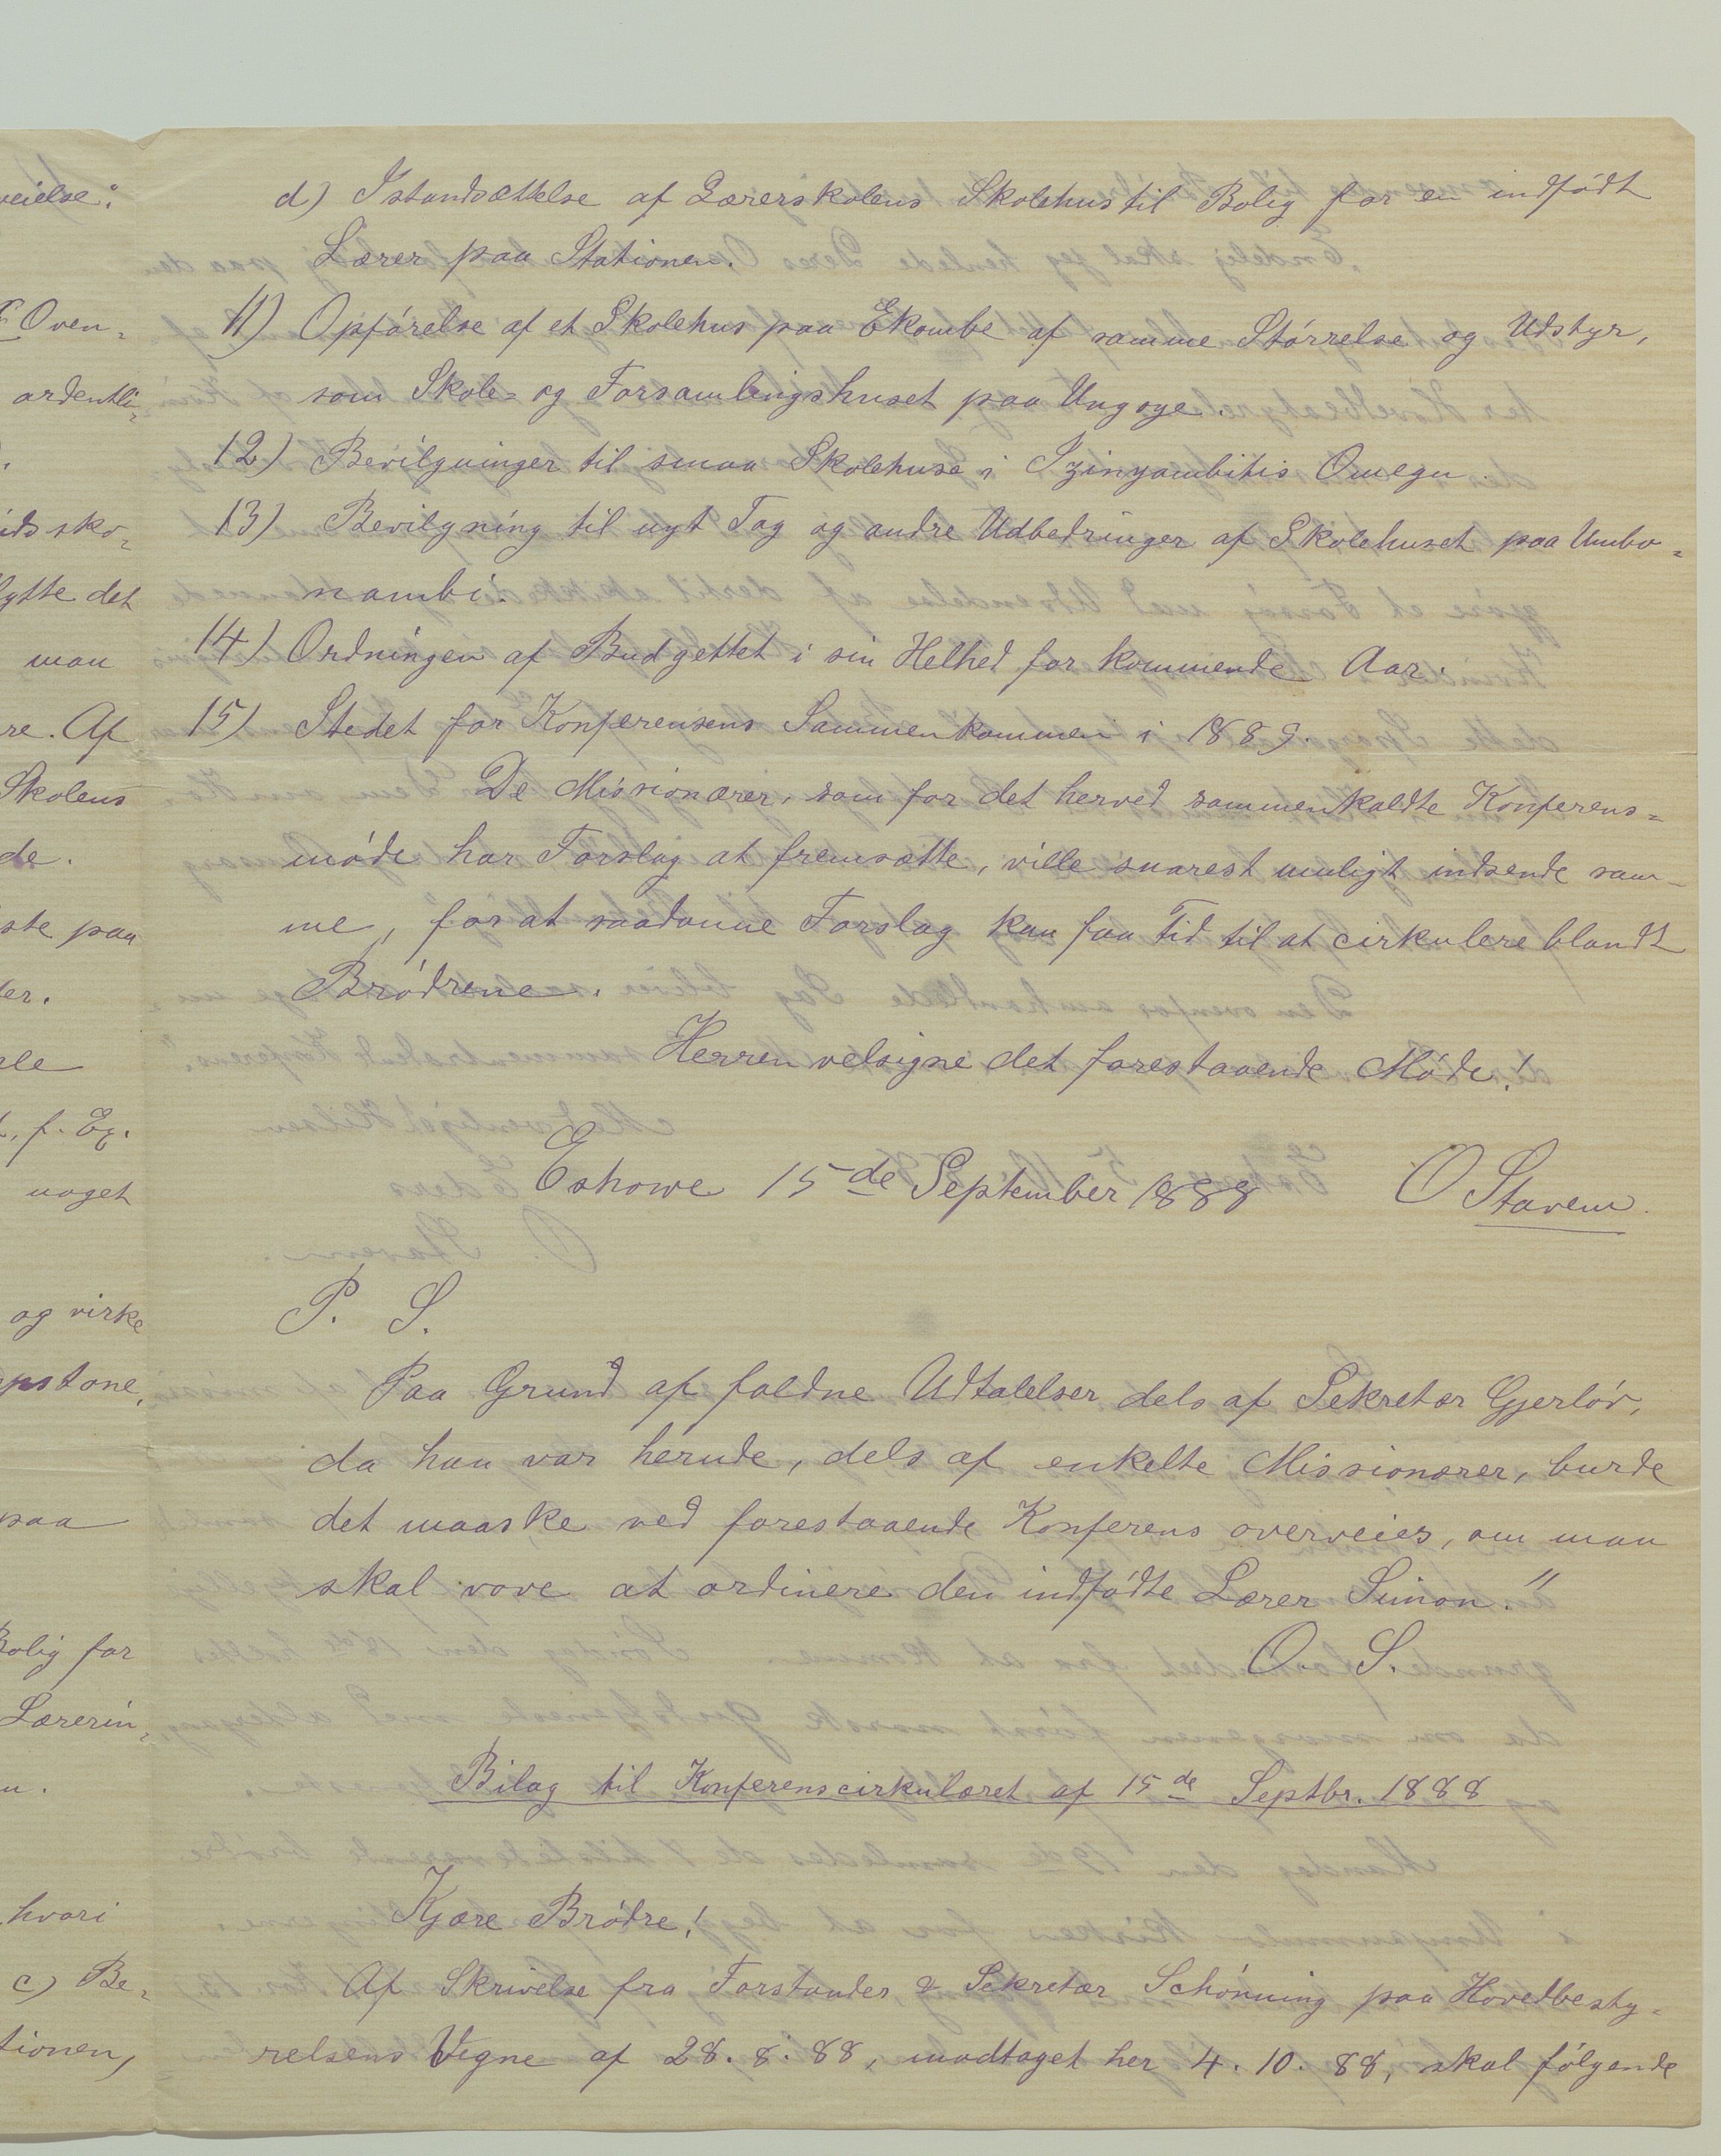 d) Istandsættelse af Lærerskolens Skolehus til Bolig for en indfödt
Lærer paa Stationen.
11) Opförelse af et Skolehus paa Ekombe af samme Störrelse og Udstyr,
som Skole= og Forsamlingshuset paa Ungoye.
12) Bevilgninger til smaa Skolehuse i Izinyambitis Omegn.
13) Bevilgning til nyt Tag og andre Udbedringer af Skolehuset paa Umbo=
nambi.
14) Ordningen af Budgettet i sin Helhed for kommende Aar.
15) Stedet for Konferensens Sammenkommen i 1889.
De Missionærer, som for det herved sammenkaldte Konferens=
möde har Forslag at fremsætte, ville snarest muligt indsende sam-
me, for at saadanne Forslag kan faa Tid til at cirkulere blandt
Brödrene.
Herren velsigne det forestaaende Möde!
Eshowe 15de September 1888 O Stavem.
P. S.
Paa Grund af faldne Udtalelser dels af Sekretær Gjerlöv,
da han var herude, dels af enkelte Missionærer, burde
det maaske ved forestaaende Konferens overveies, om man
skal vove at ordinere den indfödte Lærer Simon."
O. S.
Bilag til Konferenscirkulæret af 15de Septbr. 1888
Kjære Brödre!
Af Skrivelse fra Forstander & Sekretær Schönning paa Hovedbesty=
relsens Vegne af 28. 8. 88, modtaget her 4. 10. 88, skal fölgende
veielse:
Oven=
ordentli=
idssko=
lytte det
man
re. Af
Skolens
de.
ste paa
der.
ale
f. Ex.
noget
og virke
pstone,
paa
Bolig for
Lærerin=
n.
hvori
c) Be=
tionen,